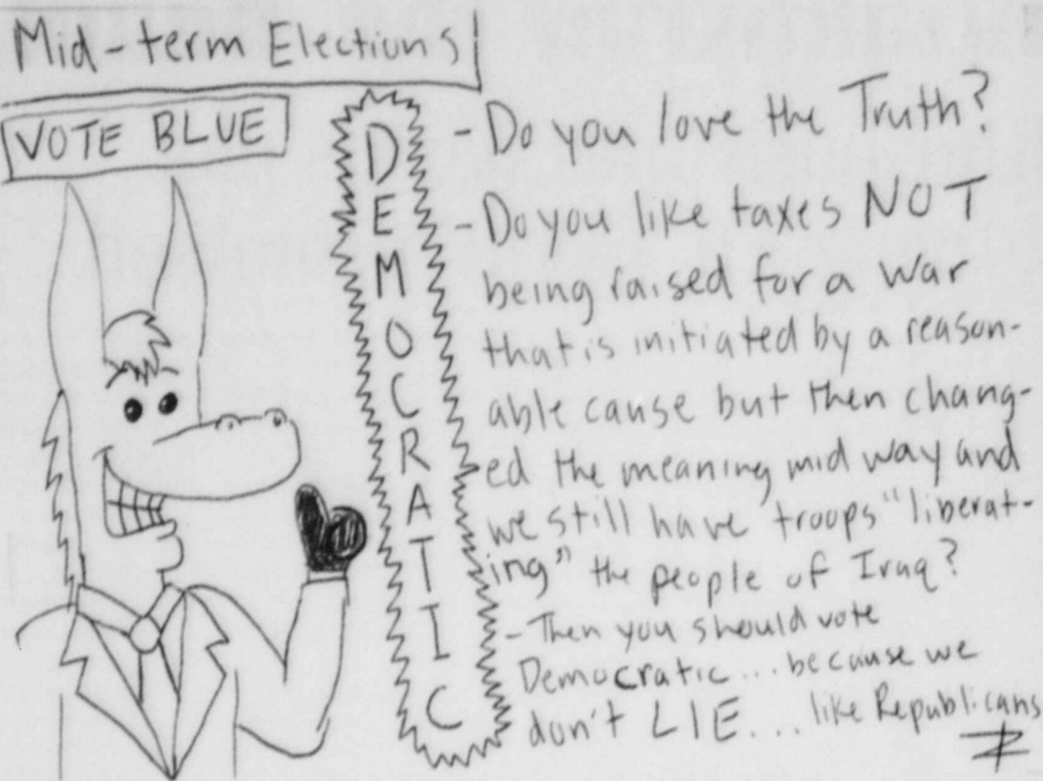 Mid-term Elections
VOTE BLUE
DEMOCRATIC
- Do you love the Truth?
- Do you like taxes NOT
being raised for a war
that is initiated by a reason-
able cause but then chang-
ed the meaning mid way and
we still have troops "liberat-
ing" the people of Iraq?
- Then you should vote
Democratic... because we
don't LIE.... like Republicans